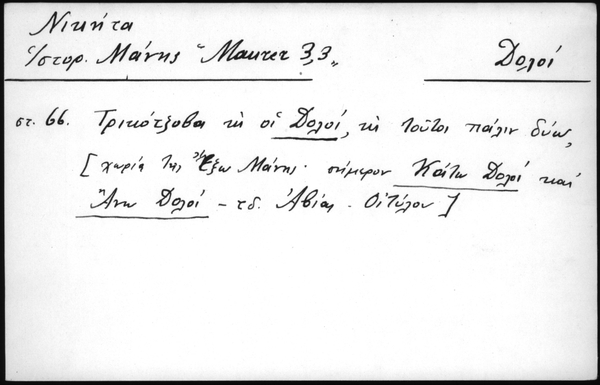 Νικήτα
Ἱστορ. Μάνης "Maurer 3,3" Δολοί
στ. 66. Τρικότζοβα κὶ οἱ Δολοί, κὶ τοῦτοι πάλιν δύω,
[χωρία τῆς Ἔξω Μάνης· σήμερον Κάτω Δολοί καὶ
Ἄνω Δολοί – τ.δ. Ἀβίας. Οἰτύλου]